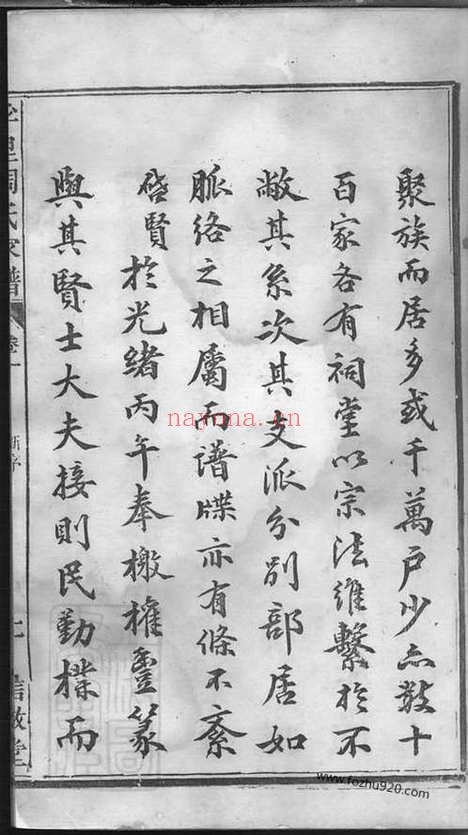 聚族而居多或千萬戶少亦數十
百家各有祠堂以宗法維繫於不
敝其系次其支派分別部居如
脈絡之相屬而譜牒亦有條不紊
啓賢於光緒丙午奉檄權壹篆
與其賢士大夫接則民勤樸而
周氏家譜
卷一
新序
七
信敬堂
nayona.cn
www.fozhu920.com